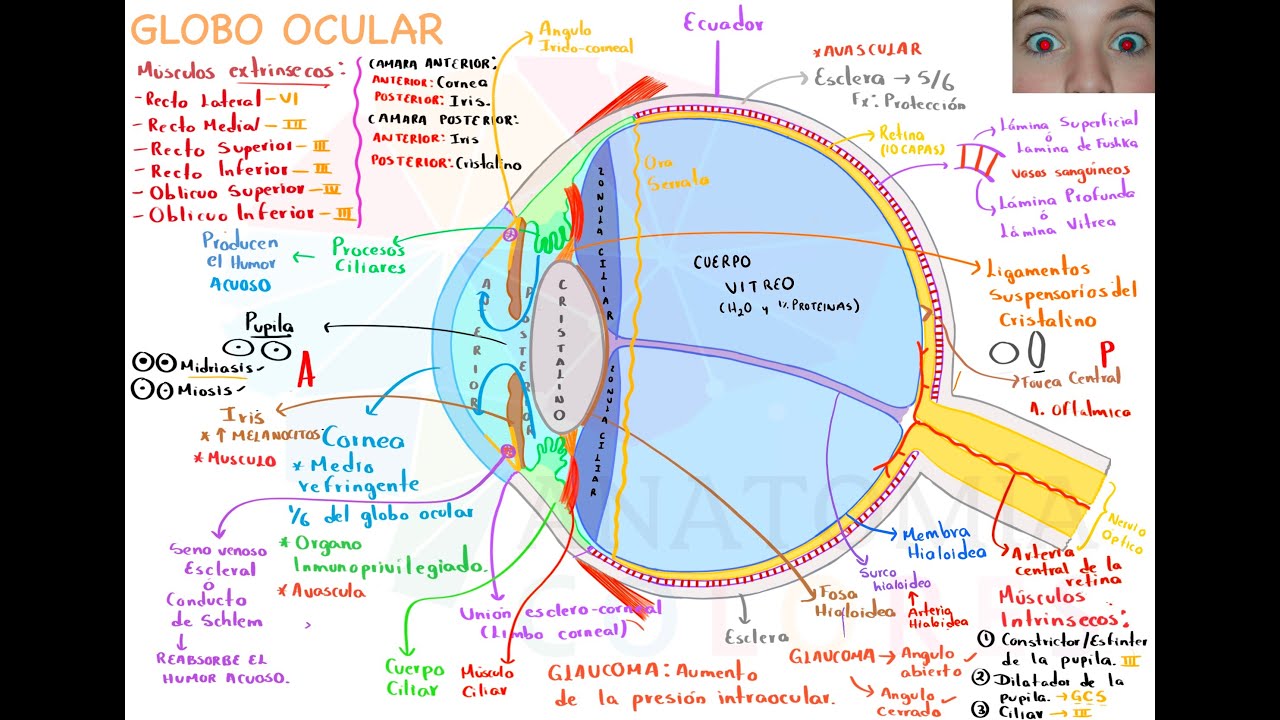 GLOBO OCULAR
Músculos extrínsecos:
- Recto Lateral - VI
- Recto Medial - III
- Recto Superior - III
- Recto Inferior - III
- Oblicuo Superior - IV
- Oblicuo Inferior - III
CAMARA ANTERIOR:
ANTERIOR: Cornea
POSTERIOR: Iris.
CAMARA POSTERIOR:
ANTERIOR: Iris
POSTERIOR: Cristalino
Angulo
Irido-corneal
Ecuador
* AVASCULAR
Esclera → 5/6
Fx: Protección
Retina
(10 CAPAS)
Lámina Superficial
ó
Lámina de Fushka
Vasos sanguíneos
Lámina Profunda
ó
Lámina Vitrea
Ora
Serrata
ZONULA CILIAR
Procesos
Ciliares
Producen
el Humor
Acuoso
CUERPO
VITREO
(H2O y 1% PROTEINAS)
Ligamentos
Suspensorios del
Cristalino
Pupila
Midriasis
Miosis
A
ANTERIOR
POSTERIOR
CRISTALINO
ZONULA CILIAR
P
Fovea Central
A. Oftalmica
Iris
* ↑ MELANOCITOS
* MUSCULO
Cornea
* Medio
refringente
1/6 del globo ocular
* Organo
Inmunoprivilegiado.
* Avascula
Seno venoso
Escleral
ó
Conducto
de Schlem
↓
REABSORBE EL
HUMOR ACUOSO.
Cuerpo
Ciliar
Músculo
Ciliar
Unión esclero-corneal
(Limbo corneal)
GLAUCOMA: Aumento
de la presión intraocular.
Esclera
Fosa
Hialoidea
Surco
hialoideo
Arteria
Hialoidea
Membra
Hialoidea
Nervio
Optico
Arteria
central de la
retina
GLAUCOMA → Angulo
abierto
Angulo
cerrado
Músculos
Intrínsecos:
1 Constrictor/Esfinter
de la pupila. III
2 Dilatador de la
pupila. → GCS
3 Ciliar → III
ANATOMÍA